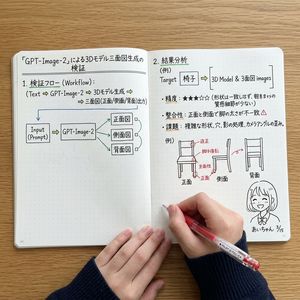 「GPT-Image-2」による3Dモデル三面図生成の
検証
1. 検証フロー (Workflow):
(Text → GPT-Image-2 → 3Dモデル生成 →
→ 三面図(正面/側面/背面)出力)
Input
(Prompt)
GPT-Image-2
正面図
側面図
背面図
2. 結果分析
(例)
Target
椅子
3D Model & 3面図 images
・精度: ★★★☆☆
・整合性: 正面と側面で脚の太さが不一致
・課題: 複雑な形状、穴、影の処理、カメラアングルの歪み。
例)
正面
側面
背面
あいちゃん